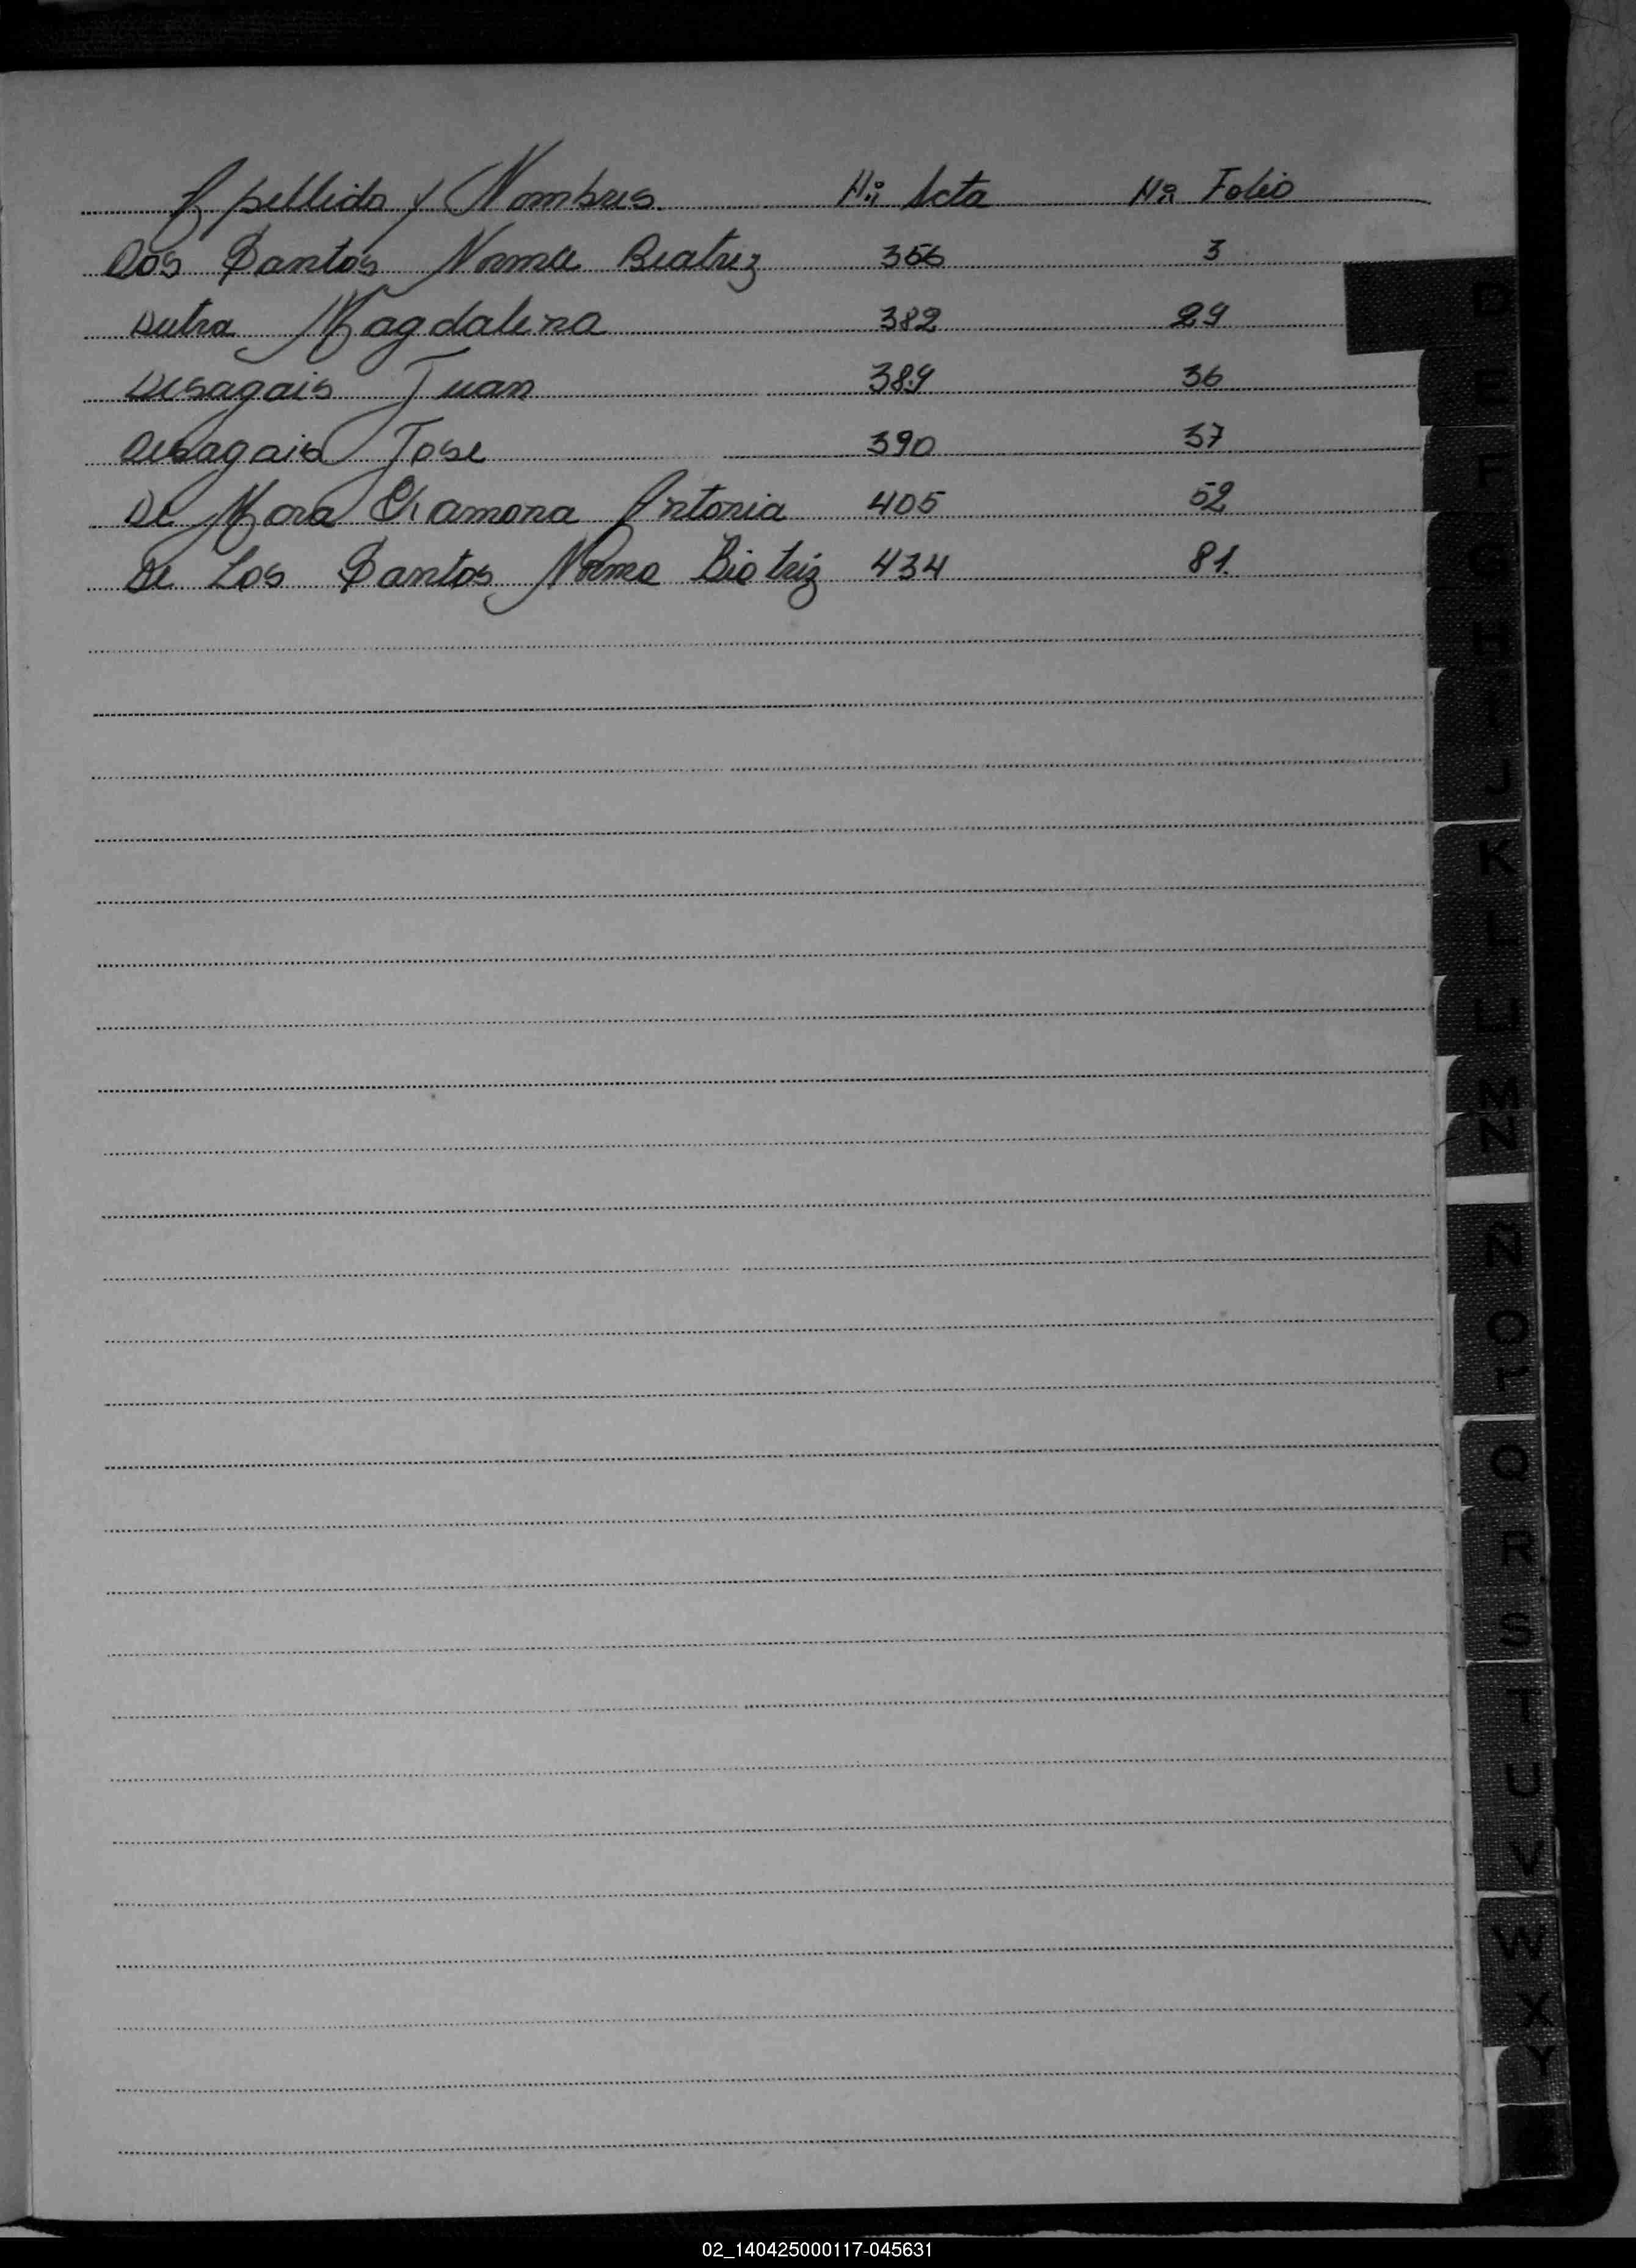 Apellido y Nombres. Nº Acta Nº Folio
Dos Santos Norma Beatriz 356 3
Dutra Magdalena 382 29
Desagais Juan 389 36
Desagais Jose 390 37
De Mora Ramona Antonia 405 52
De Los Santos Norma Biatriz 434 81.
D
E
F
G
H
I
J
K
L
LL
M
N
Ñ
O
P
Q
R
S
T
U
V
W
X
Y
02_140425000117-045631